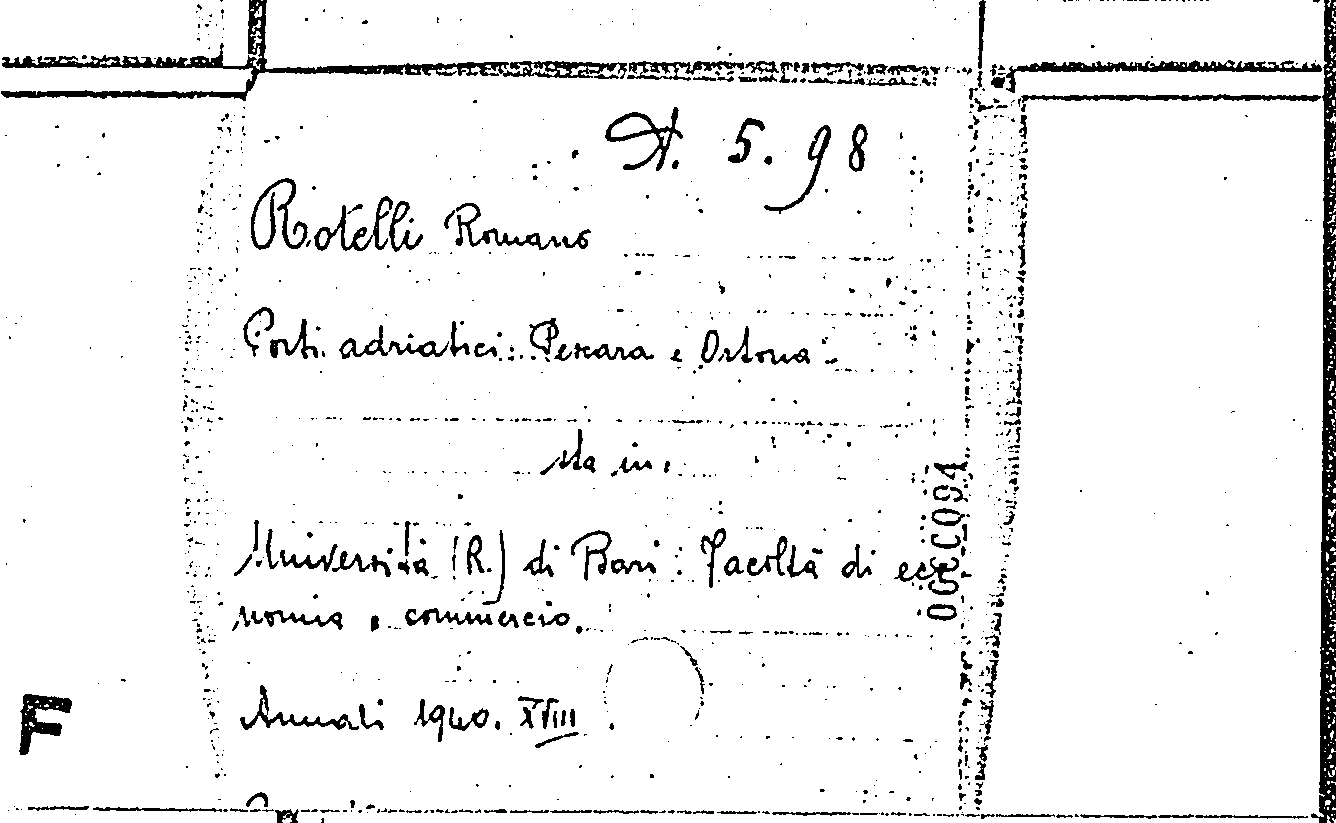 A. 5. 98
Rotelli Romano
Porti adriatici: Pescara e Ortona -
sta in:
Università (R.) di Bari: Facoltà di eco
nomia e commercio.
Annali 1940. XVIII.
F